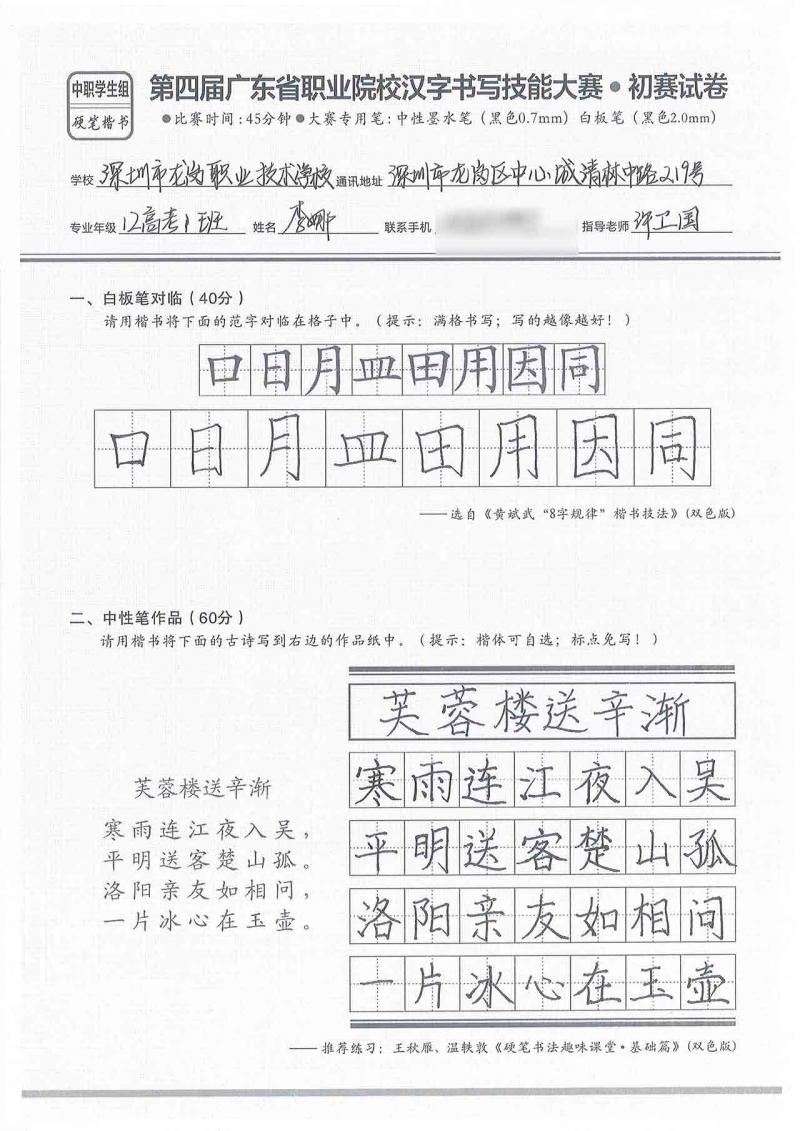 中职学生组
硬笔楷书
第四届广东省职业院校汉字书写技能大赛·初赛试卷
●比赛时间：45分钟●大赛专用笔：中性墨水笔（黑色0.7mm）白板笔（黑色2.0mm）
学校 深圳市龙岗职业技术学校 通讯地址 深圳市龙岗区中心城清林中路219号
专业年级 12高考1班 姓名 李娜 联系手机 指导老师 许卫国
一、白板笔对临（40分）
请用楷书将下面的范字对临在格子中。（提示：满格书写；写的越像越好！）
口日月皿田用因同
口日月皿田用因同
——选自《黄斌武“8字规律”楷书技法》(双色版)
二、中性笔作品（60分）
请用楷书将下面的古诗写到右边的作品纸中。（提示：楷体可自选；标点免写！）
芙蓉楼送辛渐
寒雨连江夜入吴，
平明送客楚山孤。
洛阳亲友如相问，
一片冰心在玉壶。
芙蓉楼送辛渐
寒雨连江夜入吴
平明送客楚山孤
洛阳亲友如相问
一片冰心在玉壶
——推荐练习：王秋雁、温轶敦《硬笔书法趣味课堂·基础篇》(双色版)